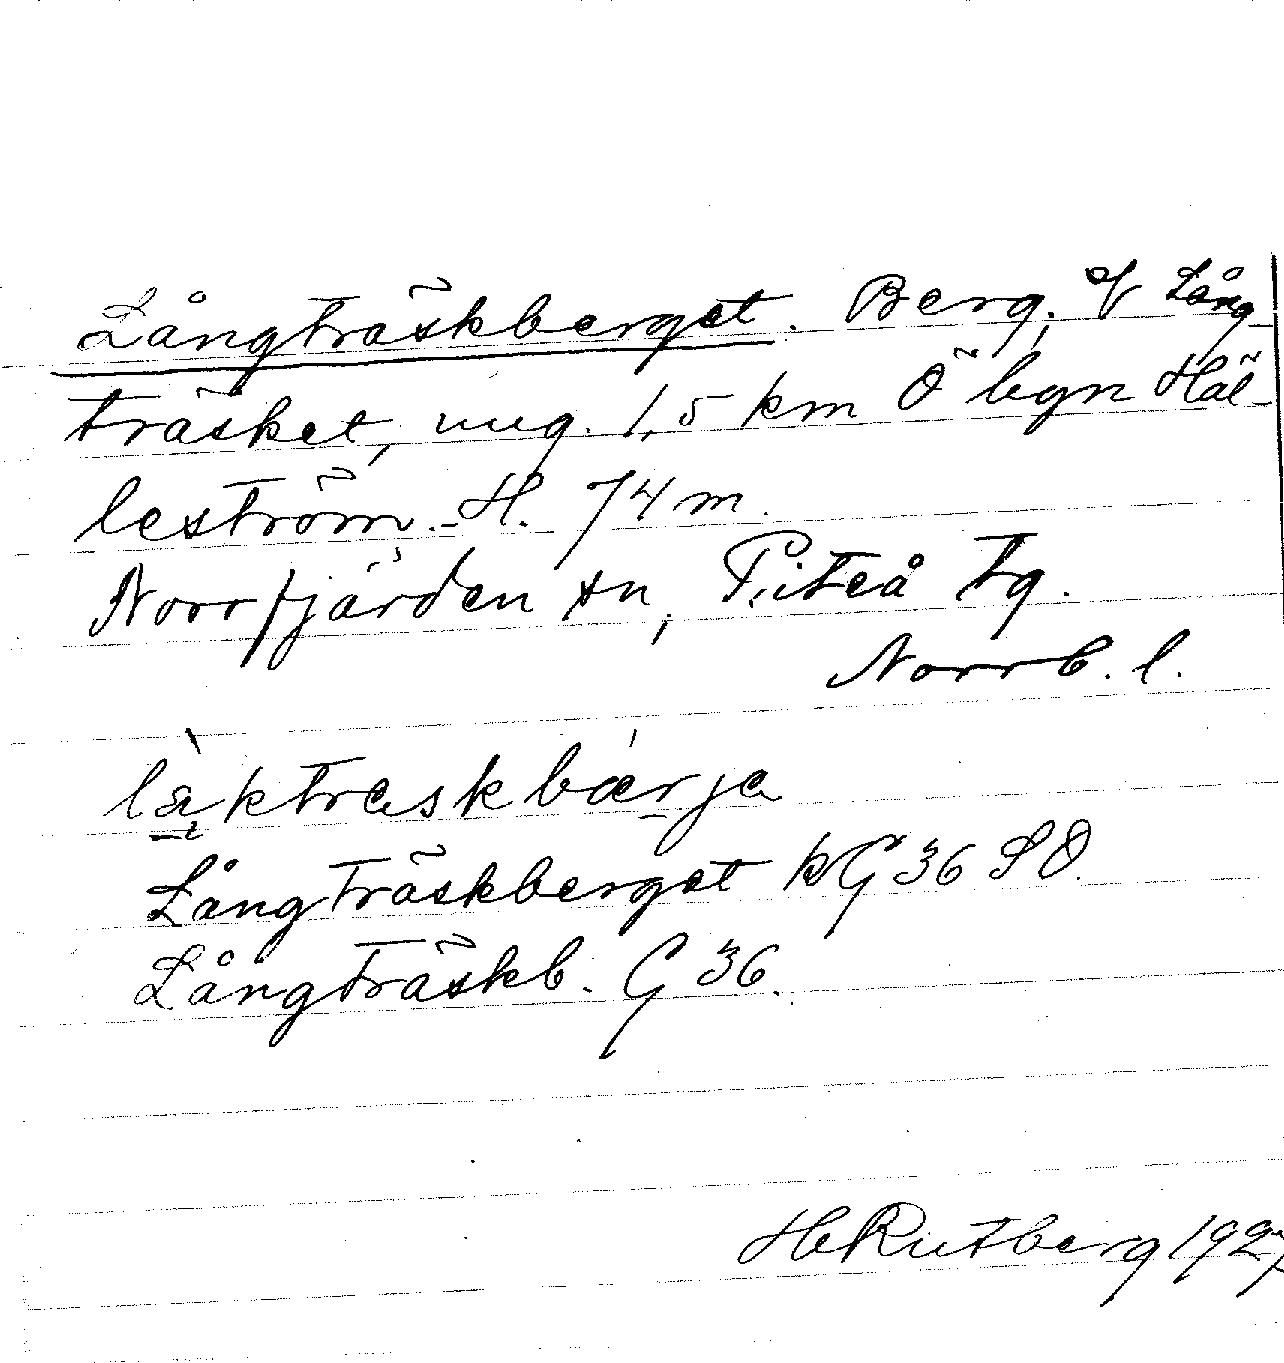 Långträskberget. Berg, V Lång-
träsket, ung. 1,5 km Ö bgn Häl-
leström. H. 74 m.
Norrfjärden sn, Piteå tg.
Norrb. l.
Långträskberget kG 36 SO.
Långträskb. G 36.
H Rutberg 1927